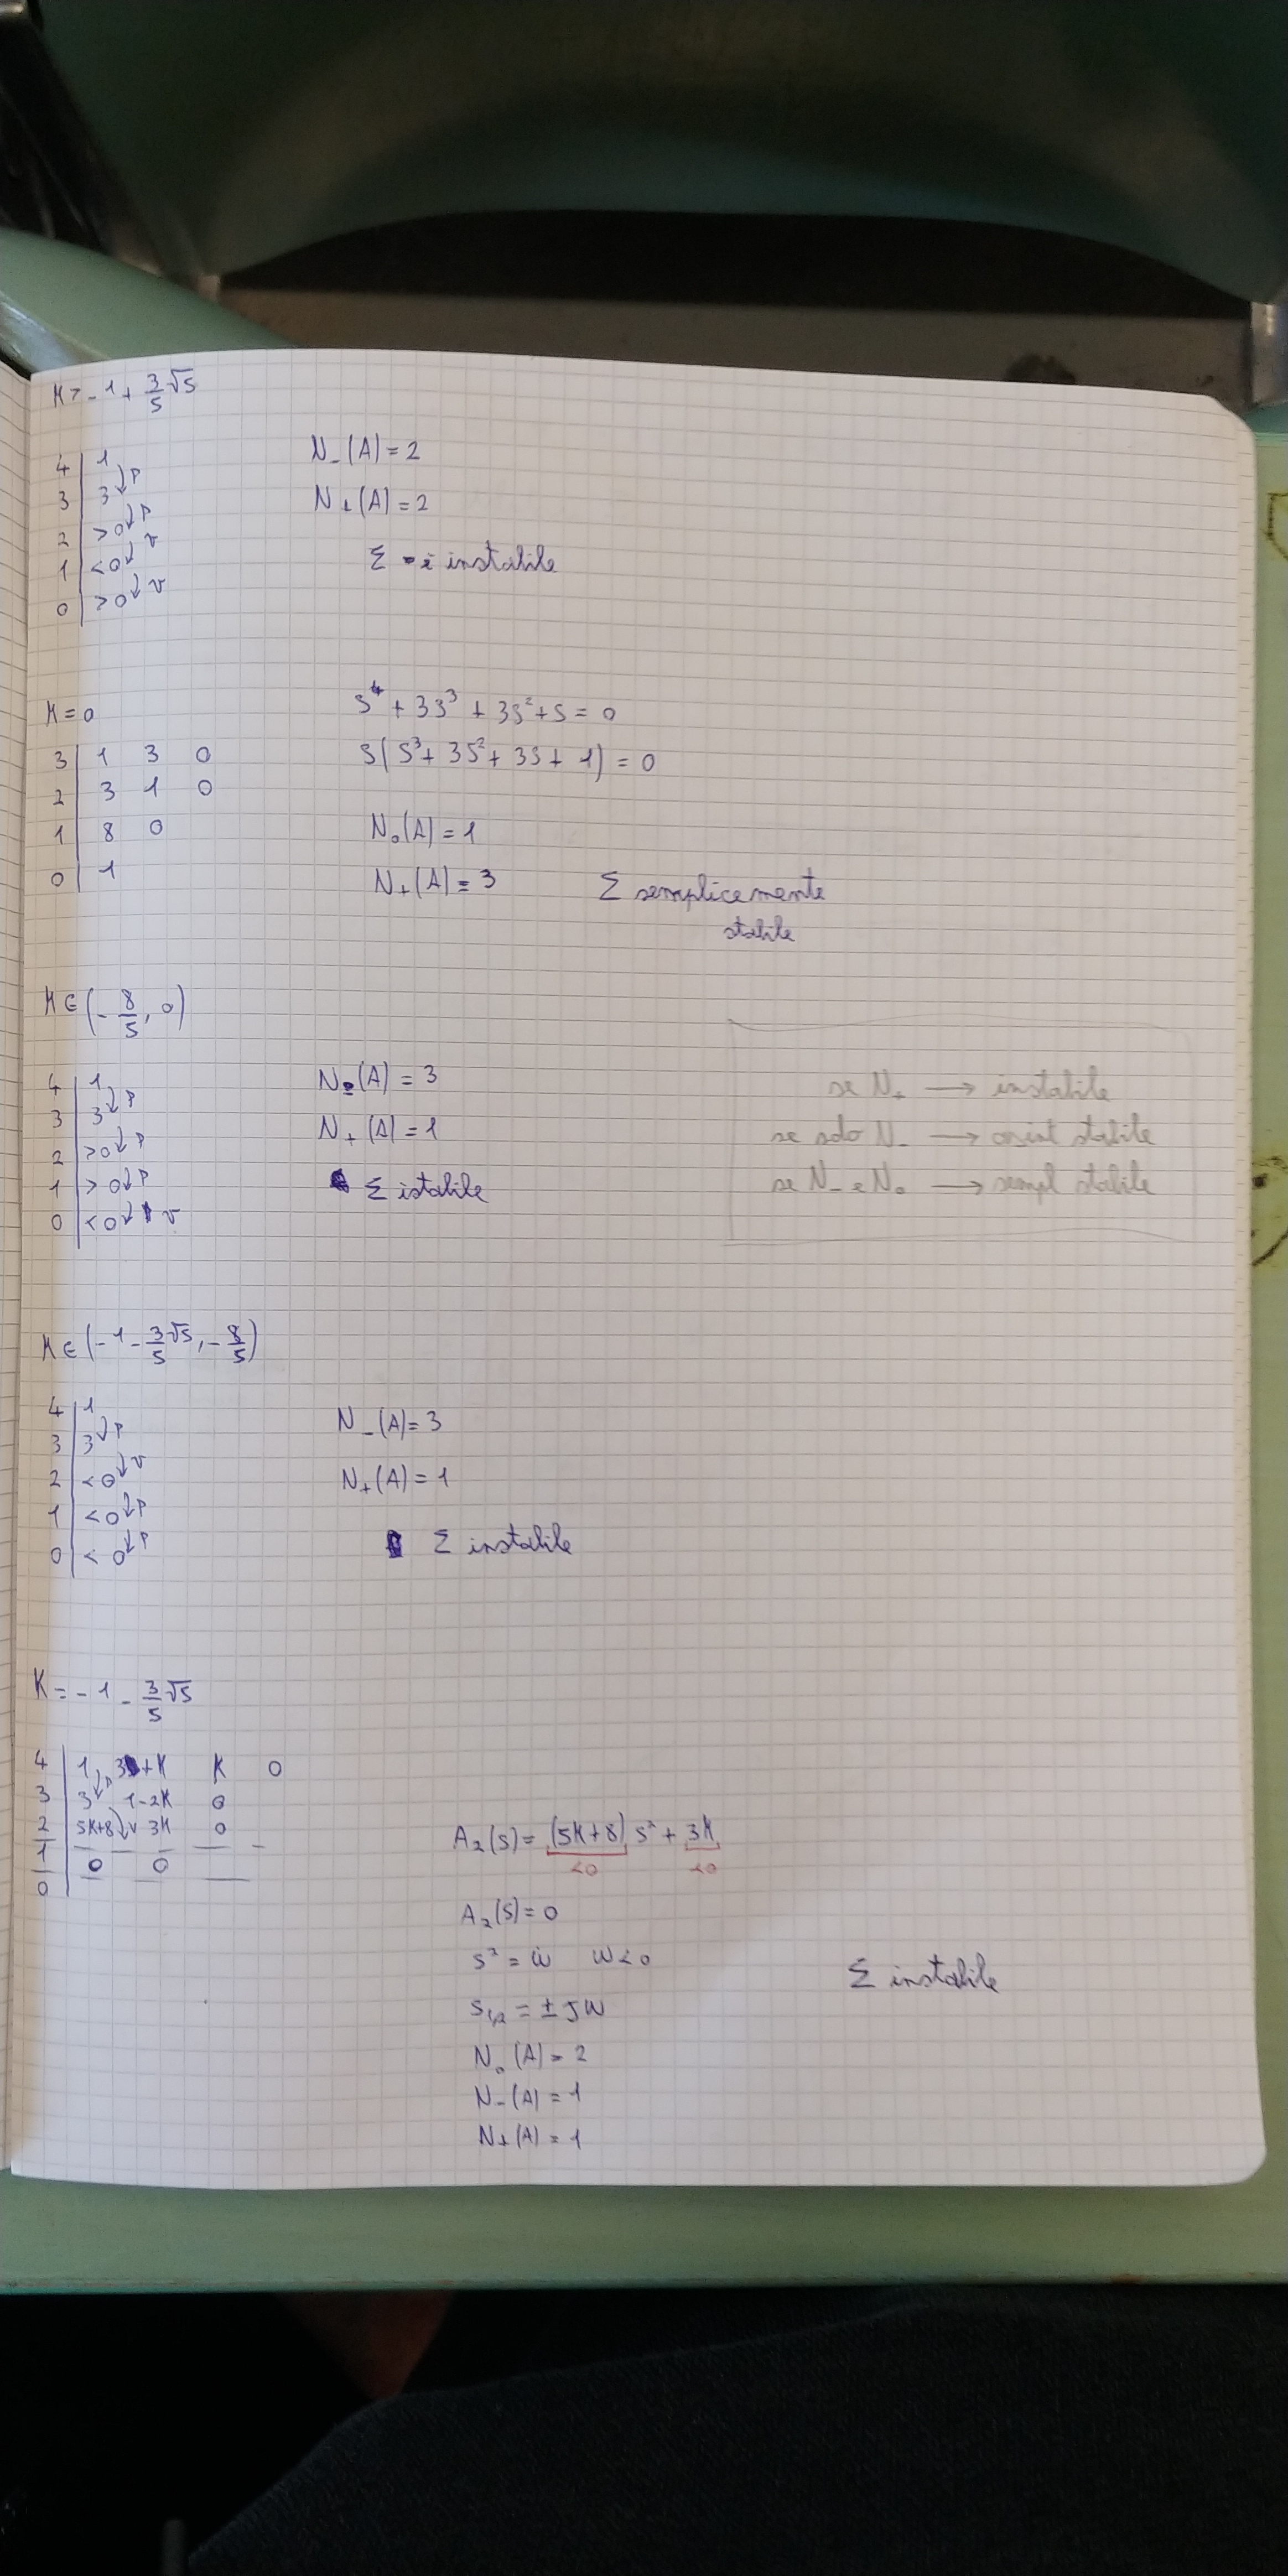 K > -1 + 3/5 √5
4 | 1 ↓P
3 | 3 ↓P
2 | >0 ↓v
1 | <0 ↓v
0 | >0
N_-(A) = 2
N_+(A) = 2
Σ è instabile
K = 0
3 | 1 3 0
2 | 3 1 0
1 | 8 0
0 | 1
s⁴ + 3s³ + 3s² + s = 0
s(s³ + 3s² + 3s + 1) = 0
N₀(A) = 1
N_+(A) = 3
Σ semplicemente
stabile
K ∈ (-8/5, 0)
4 | 1 ↓P
3 | 3 ↓P
2 | >0 ↓P
1 | >0 ↓v
0 | <0
N_-(A) = 3
N_+(A) = 1
Σ istabile
se N_+ → instabile
se solo N_- → asint stabile
se N_- e N₀ → sempl stabile
K ∈ (-1 - 3/5 √5, -8/5)
4 | 1 ↓P
3 | 3 ↓v
2 | <0 ↓P
1 | <0 ↓P
0 | <0
N_-(A) = 3
N_+(A) = 1
Σ instabile
K = -1 - 3/5 √5
4 | 1 3+K K 0 ↓P
3 | 3 1-2K 0 ↓v
2 | 5K+8 3K 0
1 | 0 0
0
A₂(s) = (5K+8) s² + 3K
<0 <0
A₂(s) = 0
s² = w w<0
s₁,₂ = ± jw
N₀(A) = 2
N_-(A) = 1
N_+(A) = 1
Σ instabile